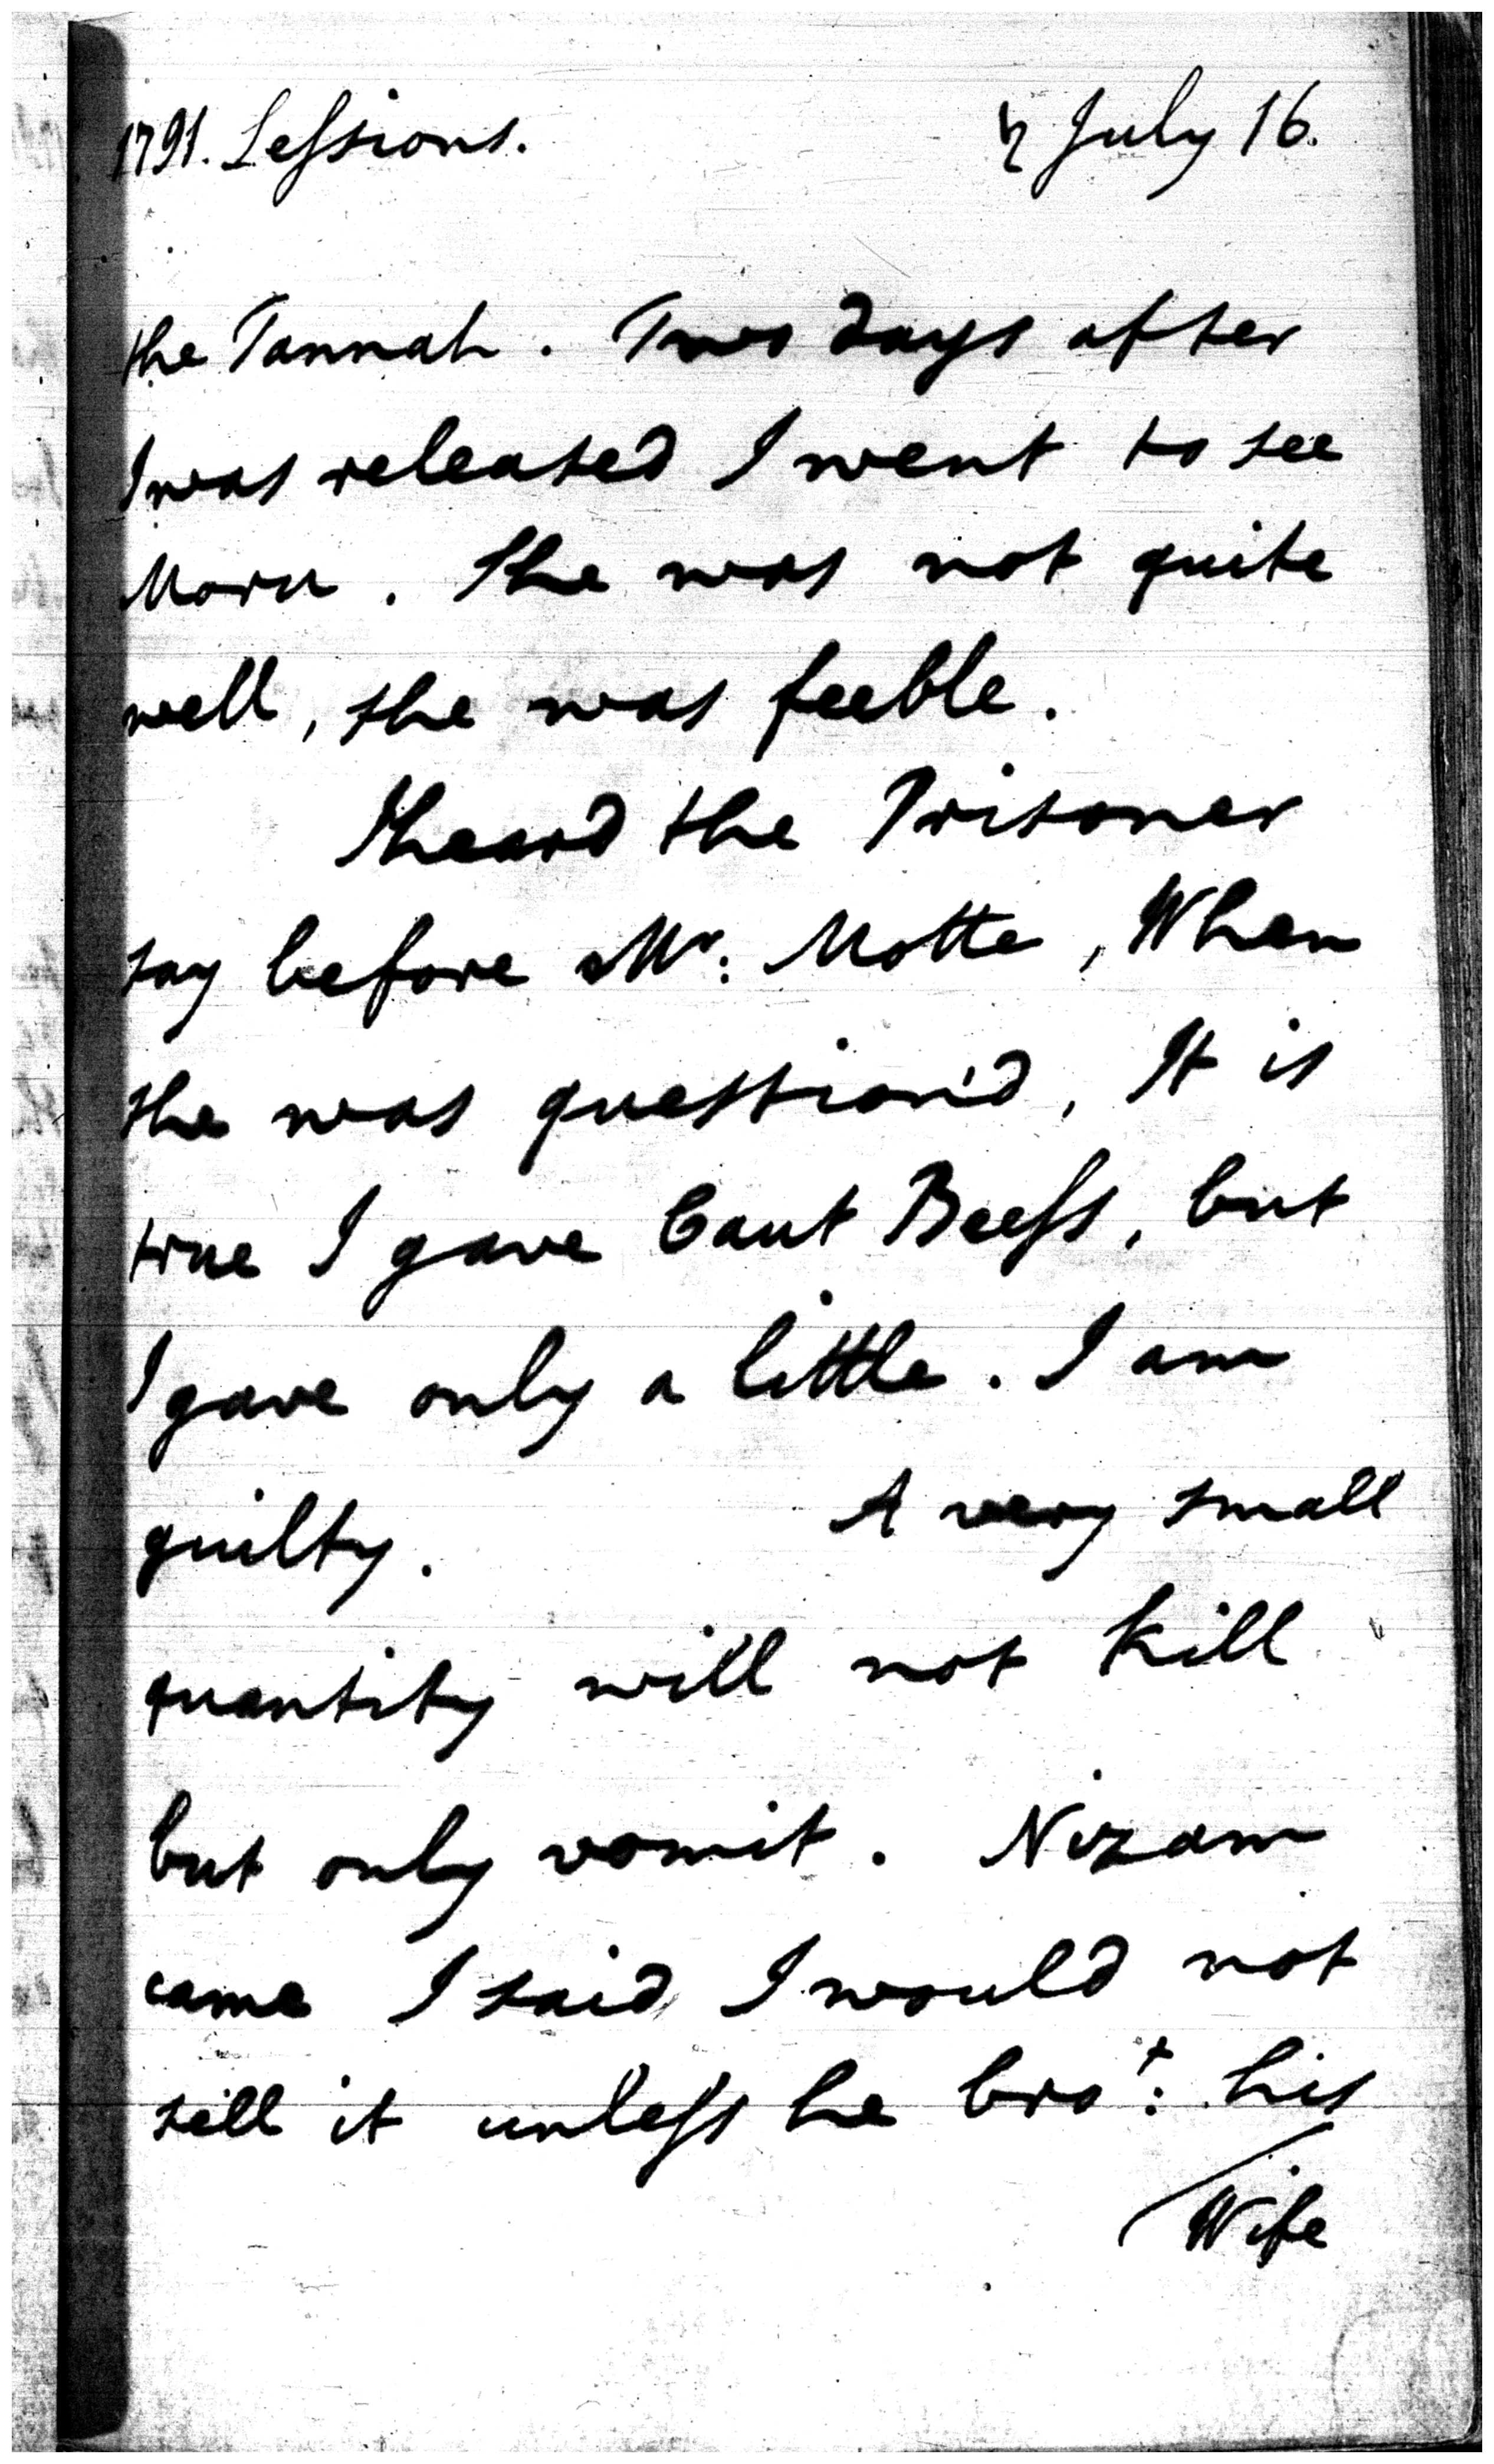 1791. Sessions. ♄ July 16.
the Tannah. Two days after
I was released I went to see
Moru. She was not quite
well, she was feeble.
I heard the Prisoner
say before Mr: Motte, When
she was question'd, It is
true I gave Caut Beess, but
I gave only a little. I am
guilty. A very small
quantity will not kill
but only vomit. Nizam
came I said I would not
sell it unless he bro't: his
Wife